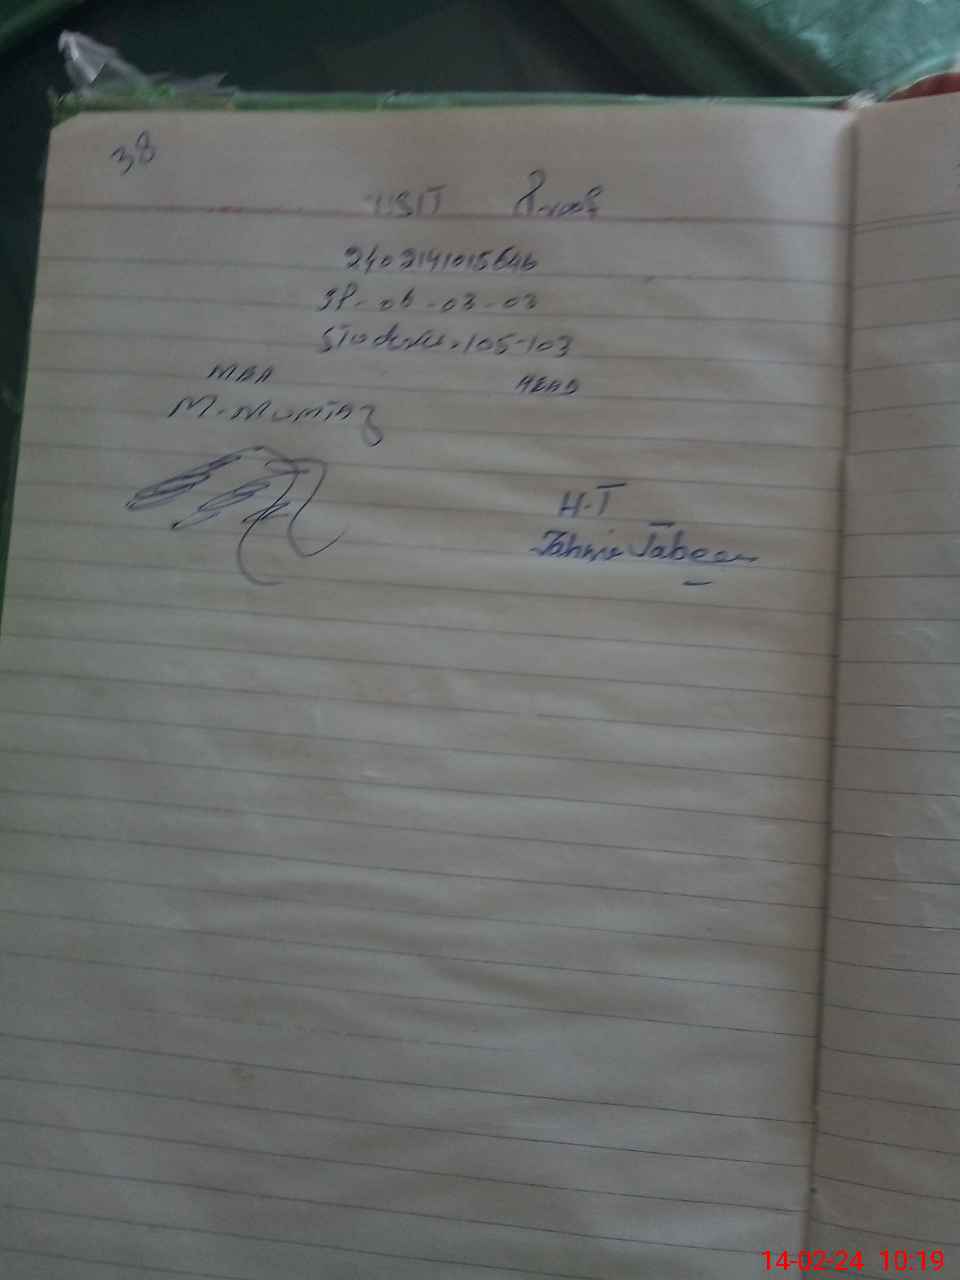 38
VISIT Proof
2402141015646
SP-06-03-03
Students.105-103
MEA HEAD
M.Mumtaz
H.T
Jabeen
14-02-24 10:19